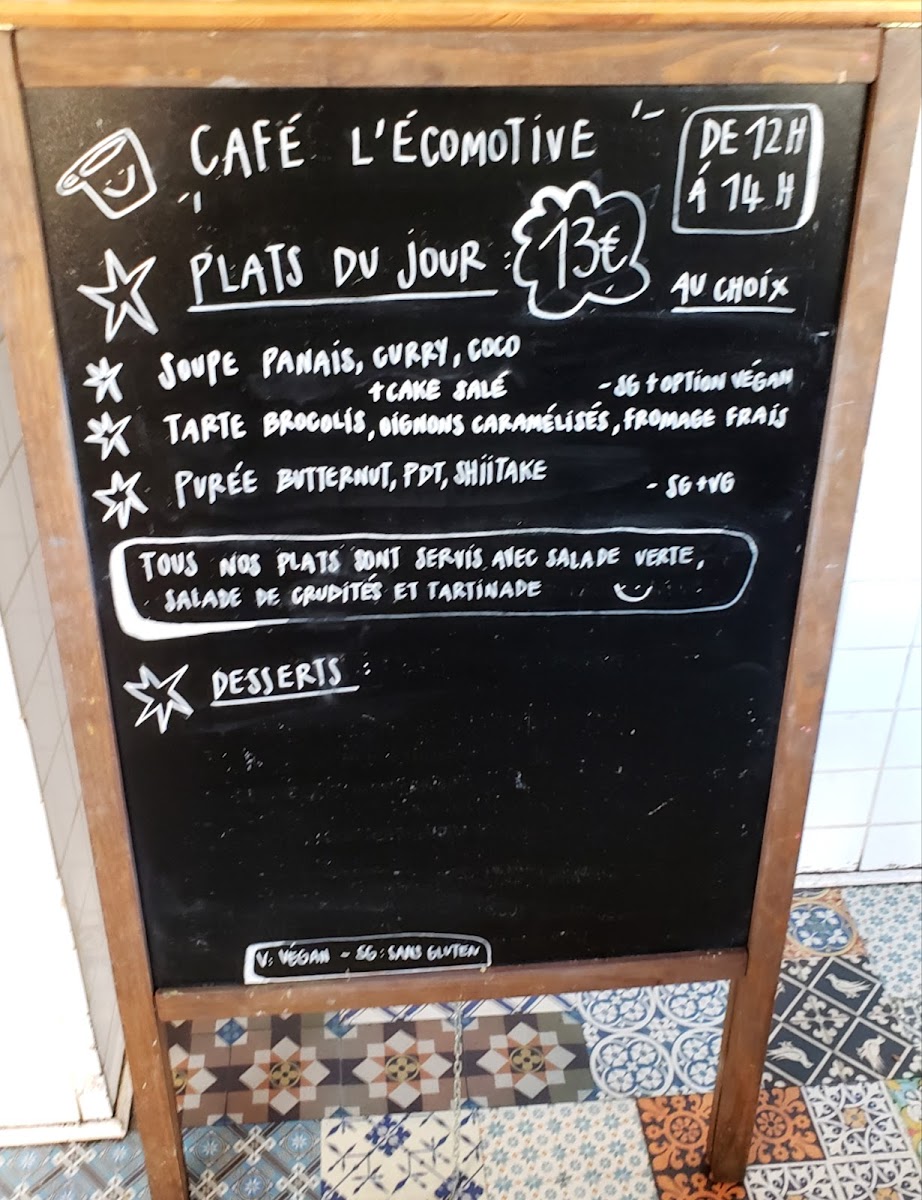 CAFÉ L'ÉCOMOTIVE
DE 12H
À 14 H
PLATS DU JOUR : 13€
AU CHOIX
SOUPE PANAIS, CURRY, COCO
+ CAKE SALÉ - SG + OPTION VÉGAN
TARTE BROCOLIS, OIGNONS CARAMÉLISÉS, FROMAGE FRAIS
PURÉE BUTTERNUT, PDT, SHIITAKE - SG + VG
TOUS NOS PLATS SONT SERVIS AVEC SALADE VERTE,
SALADE DE CRUDITÉS ET TARTINADE
DESSERTS :
V: VÉGAN - SG: SANS GLUTEN